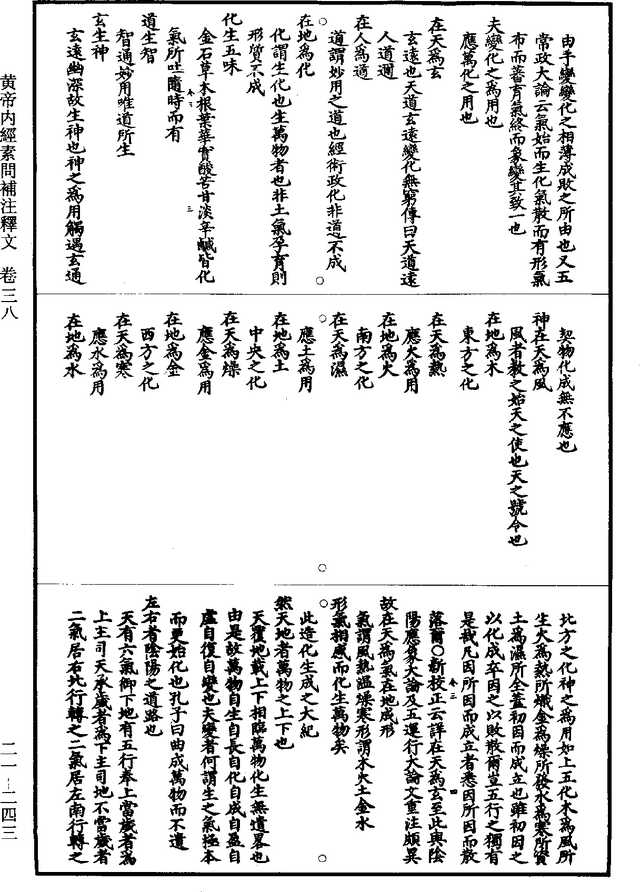 由乎變變化之相薄成敗之所由也又五
常政大論云氣始而生化氣散而有形氣
布而蕃育氣終而象變其致一也
夫變化之爲用也
應萬化之用也
在天爲玄
玄遠也天道玄遠變化無窮傳曰天道遠
人道邇
在人爲道
道謂妙用之道也經術政化非道不成
在地爲化
化謂生化也生萬物者也非土氣孕育則
形質不成
化生五味
金石草木根葉華實酸苦甘淡辛鹹皆化
氣所吐隨時而有
道生智
智通妙用唯道所生
玄生神
玄遠幽深故生神也神之爲用觸遇玄通
契物化成無不應也
神在天爲風
風者教之始天之使也天之號令也
在地爲木
東方之化
在天爲熱
應火爲用
在地爲火
南方之化
在天爲濕
應土爲用
在地爲土
中央之化
在天爲燥
應金爲用
在地爲金
西方之化
在天爲寒
應水爲用
在地爲水
北方之化神之爲用如上五化木爲風所
生火爲熱所熾金爲燥所發水爲寒所資
土爲濕所全蓋初因而成立也雖初因之
以化成卒因之以敗散爾豈五行之獨有
是哉凡因所因而成立者悉因所因而散
落爾○新校正云詳在天爲玄至此與陰
陽應象大論及五運行大論文重注頗異
故在天爲氣在地成形
氣謂風熱濕燥寒形謂木火土金水
形氣相感而化生萬物矣
此造化生成之大紀
然天地者萬物之上下也
天覆地載上下相臨萬物化生無遺略也
由是故萬物自生自長自化自成自盈自
虛自復自變也夫變者何謂生之氣極本
而更始化也孔子曰曲成萬物而不遺
左右者陰陽之道路也
天有六氣御下地有五行奉上當歲者爲
上主司天承歲者爲下主司地不當歲者
二氣居右北行轉之二氣居左南行轉之
黄帝内經素問補注釋文 卷三八
二一-二四三